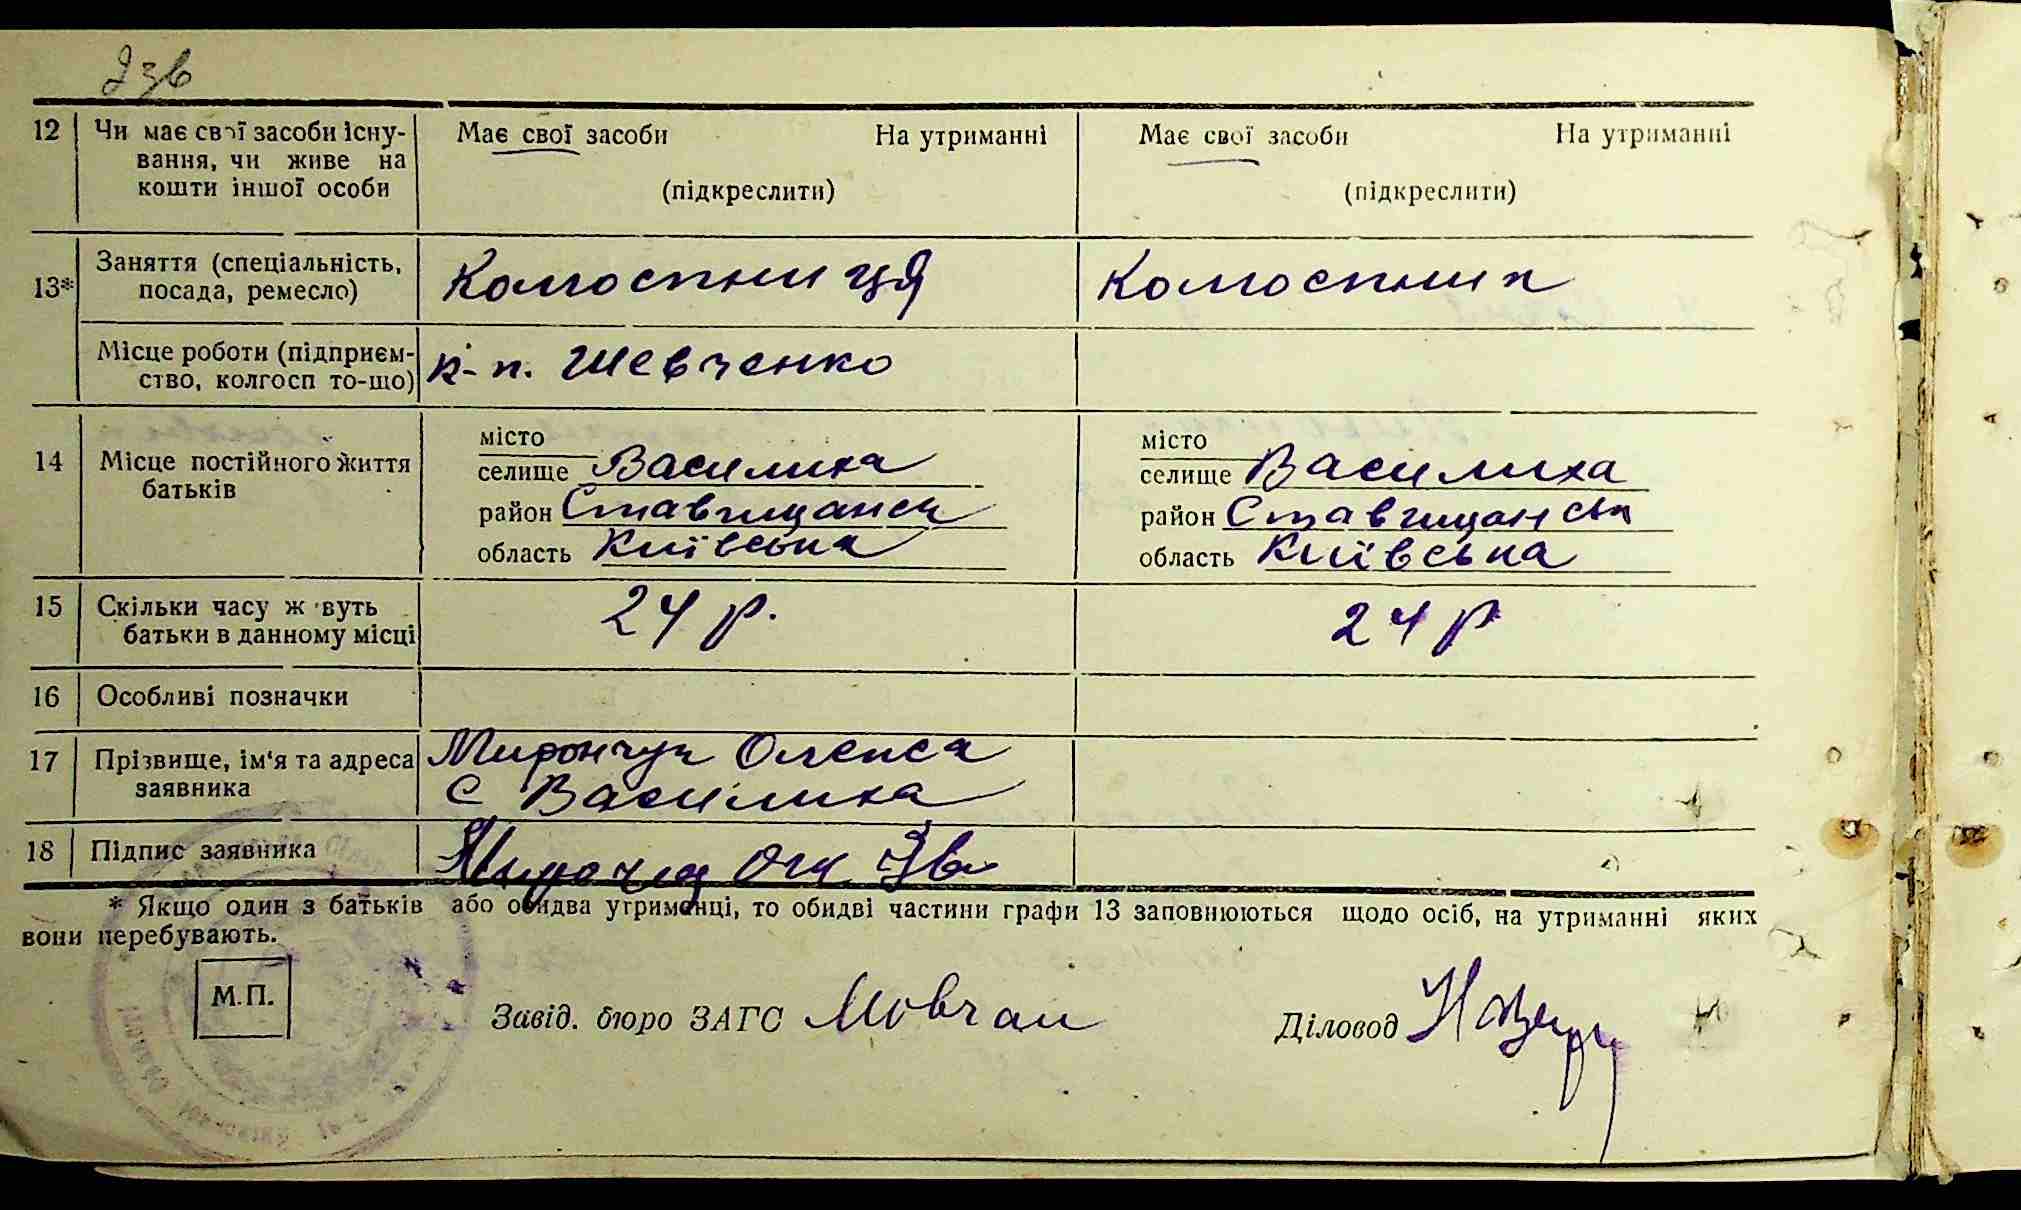 23в
12 Чи має свої засоби існу- Має свої засоби На утриманні Має свої засоби На утриманні
вання, чи живе на
кошти іншої особи (підкреслити) (підкреслити)
13* Заняття (спеціальність, посада, ремесло) Колгоспниця Колгоспник
Місце роботи (підприєм- к-п. Шевченко
ство, колгосп то-що)
14 Місце постійного життя батьків
місто місто
селище Василиха селище Василиха
район Ставищанськ район Ставищанськ
область Київська область Київська
15 Скільки часу ж вуть 24 р. 24 р
батьки в данному місці
16 Особливі позначки
17 Прізвище, ім'я та адреса Мирончук Олекса
заявника с Василиха
18 Підпис заявника
* Якщо один з батьків або обидва утриманці, то обидві частини графи 13 заповнюються щодо осіб, на утриманні яких
вони перебувають.
М.П.
Завід. бюро ЗАГС Мовчан Діловод